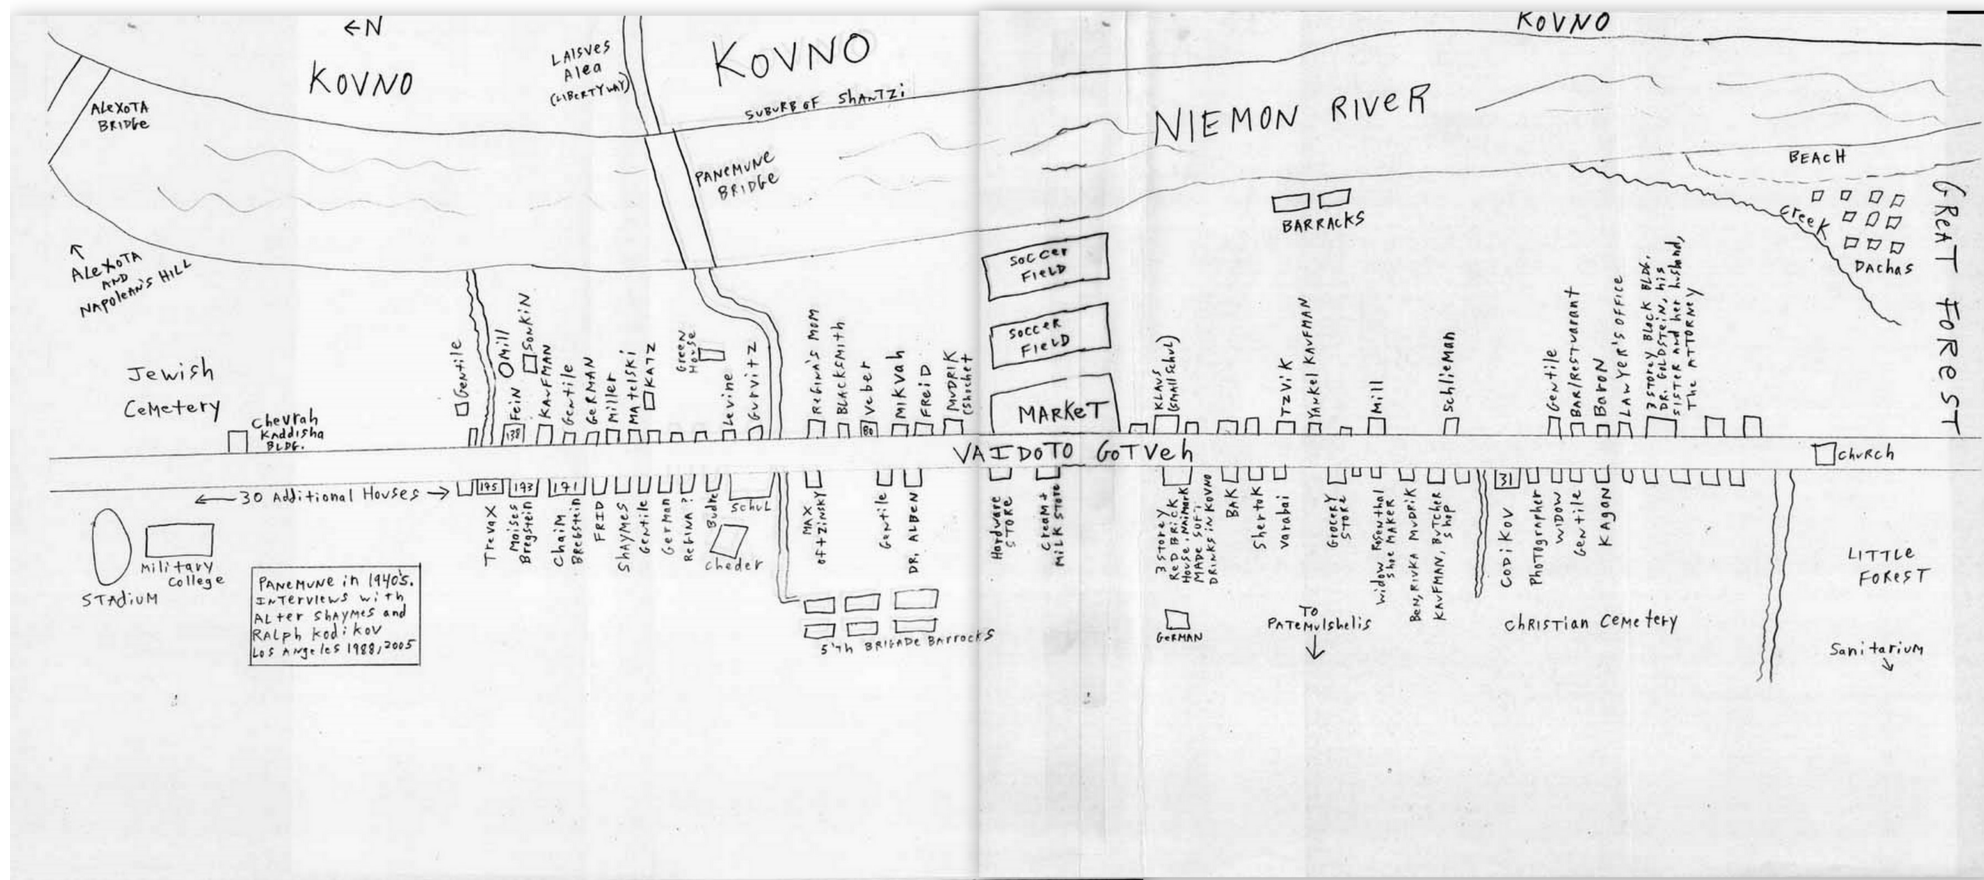 ←N
KOVNO
LAISVES
Alea
(LIBERTY WAY)
KOVNO
SUBURB OF SHANTZI
KOVNO
NIEMON RIVER
ALEXOTA
BRIDGE
PANEMUNE
BRIDGE
BEACH
Creek
DACHAS
GREAT FOREST
BARRACKS
ALEXOTA
AND
NAPOLEAN'S HILL
SOCCER
FIELD
SOCCER
FIELD
MARKET
Jewish
Cemetery
Chevrah
Kaddisha
BLDG.
Gentile
138
FEIN
Mill
SONKIN
KAUFMAN
Gentile
GERMAN
Miller
MATELSKI
KATZ
GREEN
HOUSE
Levine
Gurvitz
REGINA'S MOM
BLACKSMITH
Veber
MIKVAH
FREID
MUDRIK
(Shochet
KLAUS
(SMALL Schul)
TZVIK
YANKEL KAUFMAN
Mill
Schlieman
Gentile
BAR/RESTUARANT
BARON
LAWYER'S OFFICE
3 STOREY BLOCK BLDG.
DR. GOLDSTEIN, his
SISTER and her husband,
The ATTORNEY
VAIDOTO GOTVEH
CHURCH
← 30 Additional Houses →
175
173
171
TrevaX
Moises
Bregstein
Chaim
BREGSTEIN
FRID
SHAYMES
GENTILE
German
REGINA?
Budre
Schul
cheder
MAX
OFTZINSKY
Gentile
DR. ALBEN
Hardware
STORE
CREAM +
MILK STORE
3 STOREY
RED BRICK
House, NAIMARK
MADE SOFT
DRINKS IN KOVNO
BAK
Shertok
Varabai
GROCERY
STORE
Widow Rosenthal
Shoe MAKER
BEN, RIVKA MUDRIK
KAUFMAN, BUTCHER
Shop
31
CODIKOV
PHOTOGRAPHER
WIDOW
GENTILE
KAGON
STADIUM
Military
College
PANEMUNE in 1940's.
INTERVIEWS with
ALTER SHAYMES and
RALPH Kodikov
Los Angeles 1988, 2005
5'th BRIGADE Barrocks
GERMAN
TO
PATEMULSHELIS
ChRISTIAN CEMETERY
LITTLE
FOREST
Sanitarium